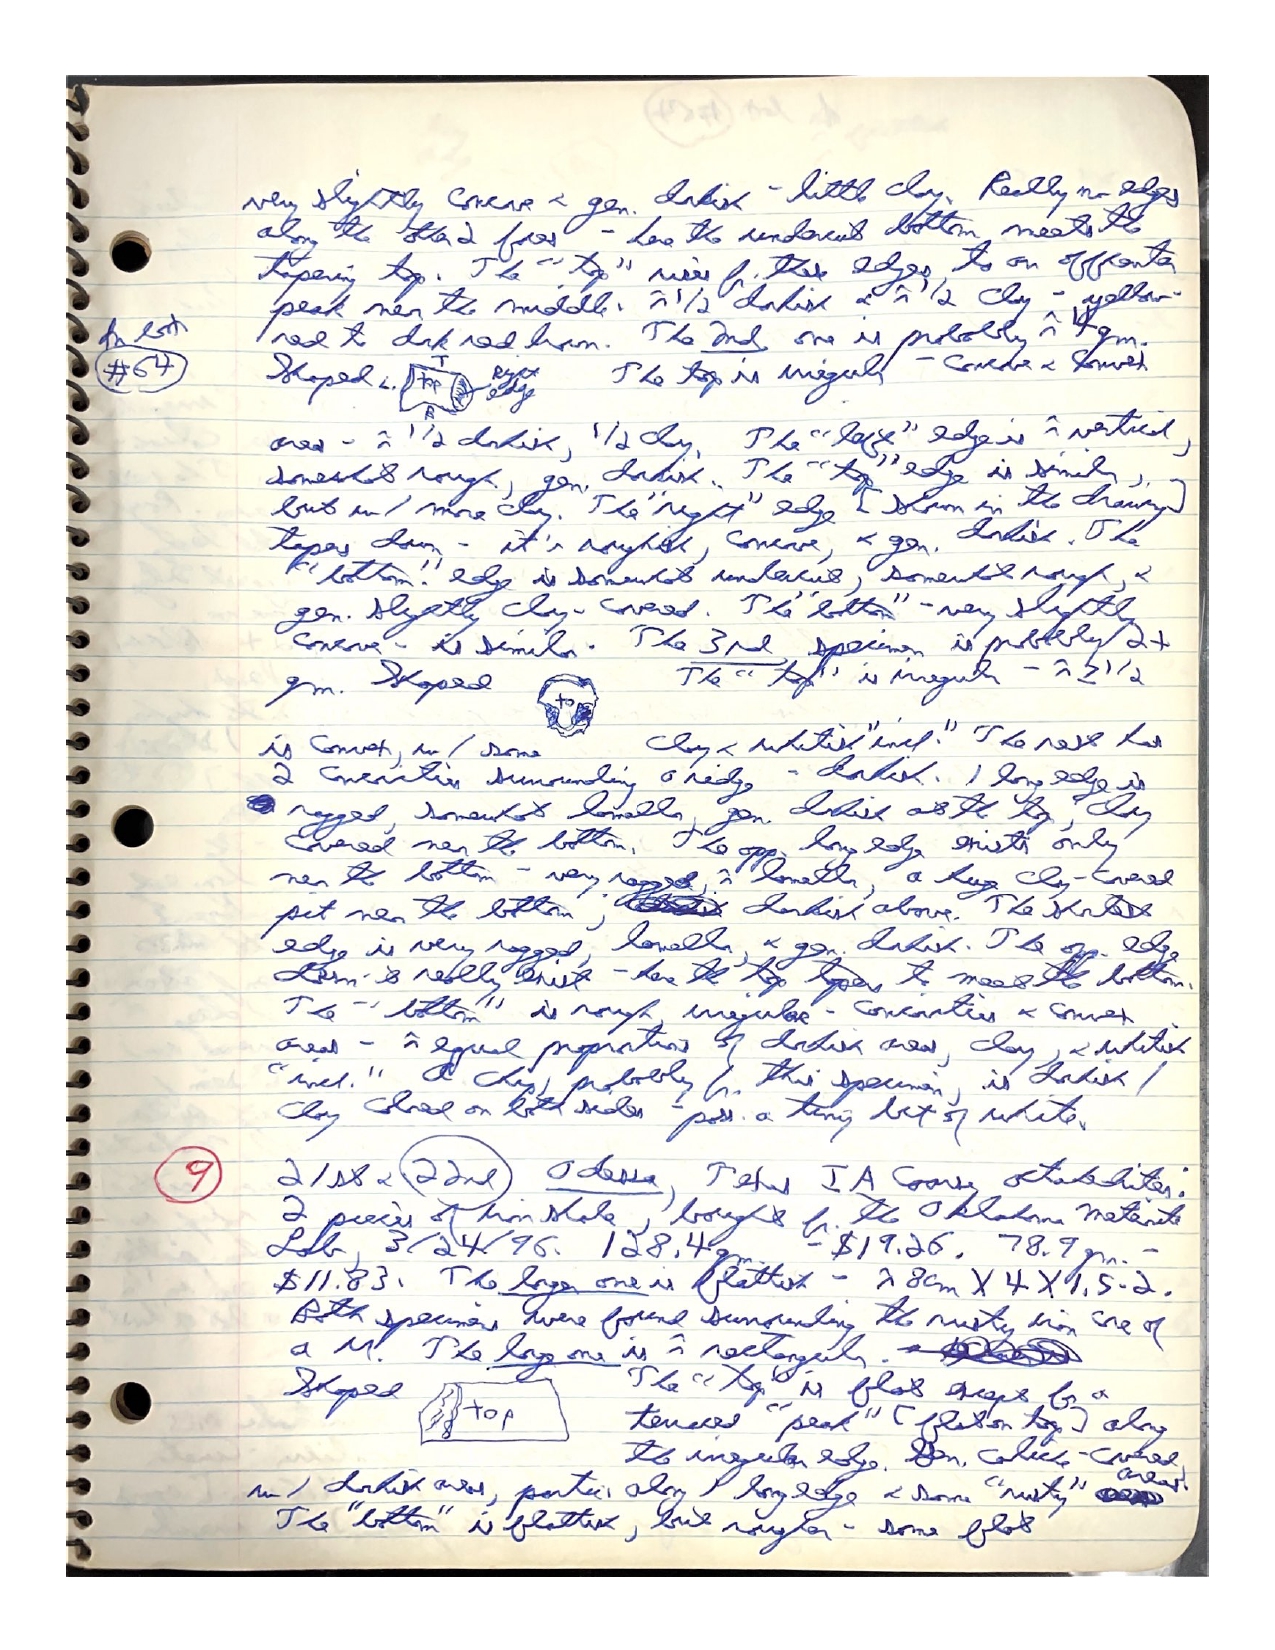 very slightly concave & gen. darkish - little clay. Really no edges
along the other 2 faces - here the undercut bottom meets the
tapering top. The "top" rises fr. these edges to an off-center
peak near the middle. ≈ 1/2 darkish & ≈ 1/2 clay - yellow-
red to dark red brown. The 2nd one is probably ≈ gm.
In both
#64
Shaped
T
top
B
Right edge
The top is irregular - concave & convex
areas - ≈ 1/2 darkish, 1/2 clay. The "left" edge is ≈ vertical,
somewhat rough, gen. darkish. The "top" edge is similar,
but w/ more clay. The "right" edge [shown in the drawing]
tapers down - it's roughish, concave, & gen. darkish. The
"bottom" edge is somewhat undercut, somewhat rough, &
gen. slightly clay-covered. The "bottom" - very slightly
concave - is similar. The 3rd specimen is probably 2+
gm. Shaped
top
The "top" is irregular - ≈ 1/2
is convex, w/ some clay & whitish "incl." The rest has
2 concavities surrounding a ridge - darkish. 1 long edge is
ragged, somewhat lamellar, gen. darkish at the top, clay
covered near the bottom. The opp. long edge exists only
near the bottom - very ragged, ≈ lamellar, a huge clay-covered
pit near the bottom; darkish above. The shortest
edge is very ragged, lamellar, & gen. darkish. The opp. edge
doesn't really exist - here the top tapers to meet the bottom.
The "bottom" is rough, irregular - concavities & convex
areas - ≈ equal proportions of darkish areas, clay, & whitish
"incl." A chip, probably fr. this specimen, is darkish/
clay colored on both sides - poss. a tiny bit of white.
9
21st & 22nd Odessa, Texas IA Coarse octahedrites.
2 pieces of iron shale, bought fr. the Oklahoma Meteorite
Lab, 3/24/96. 128.4 gm. - $19.26. 78.9 gm. -
$11.83. The larger one is flattish - ≈ 8cm X 4 X 1.5-2.
Both specimens were found surrounding the rusty iron core of
a M. The large one is ≈ rectangular.
Shaped
top
The "top" is flat except for a
terraced "peak" [flat on top] along
the irregular edge. Gen. caliche-covered,
w/ darkish areas, partic. along 1 long edge & some "rusty" areas.
The "bottom" is flattish, but rougher - some flat